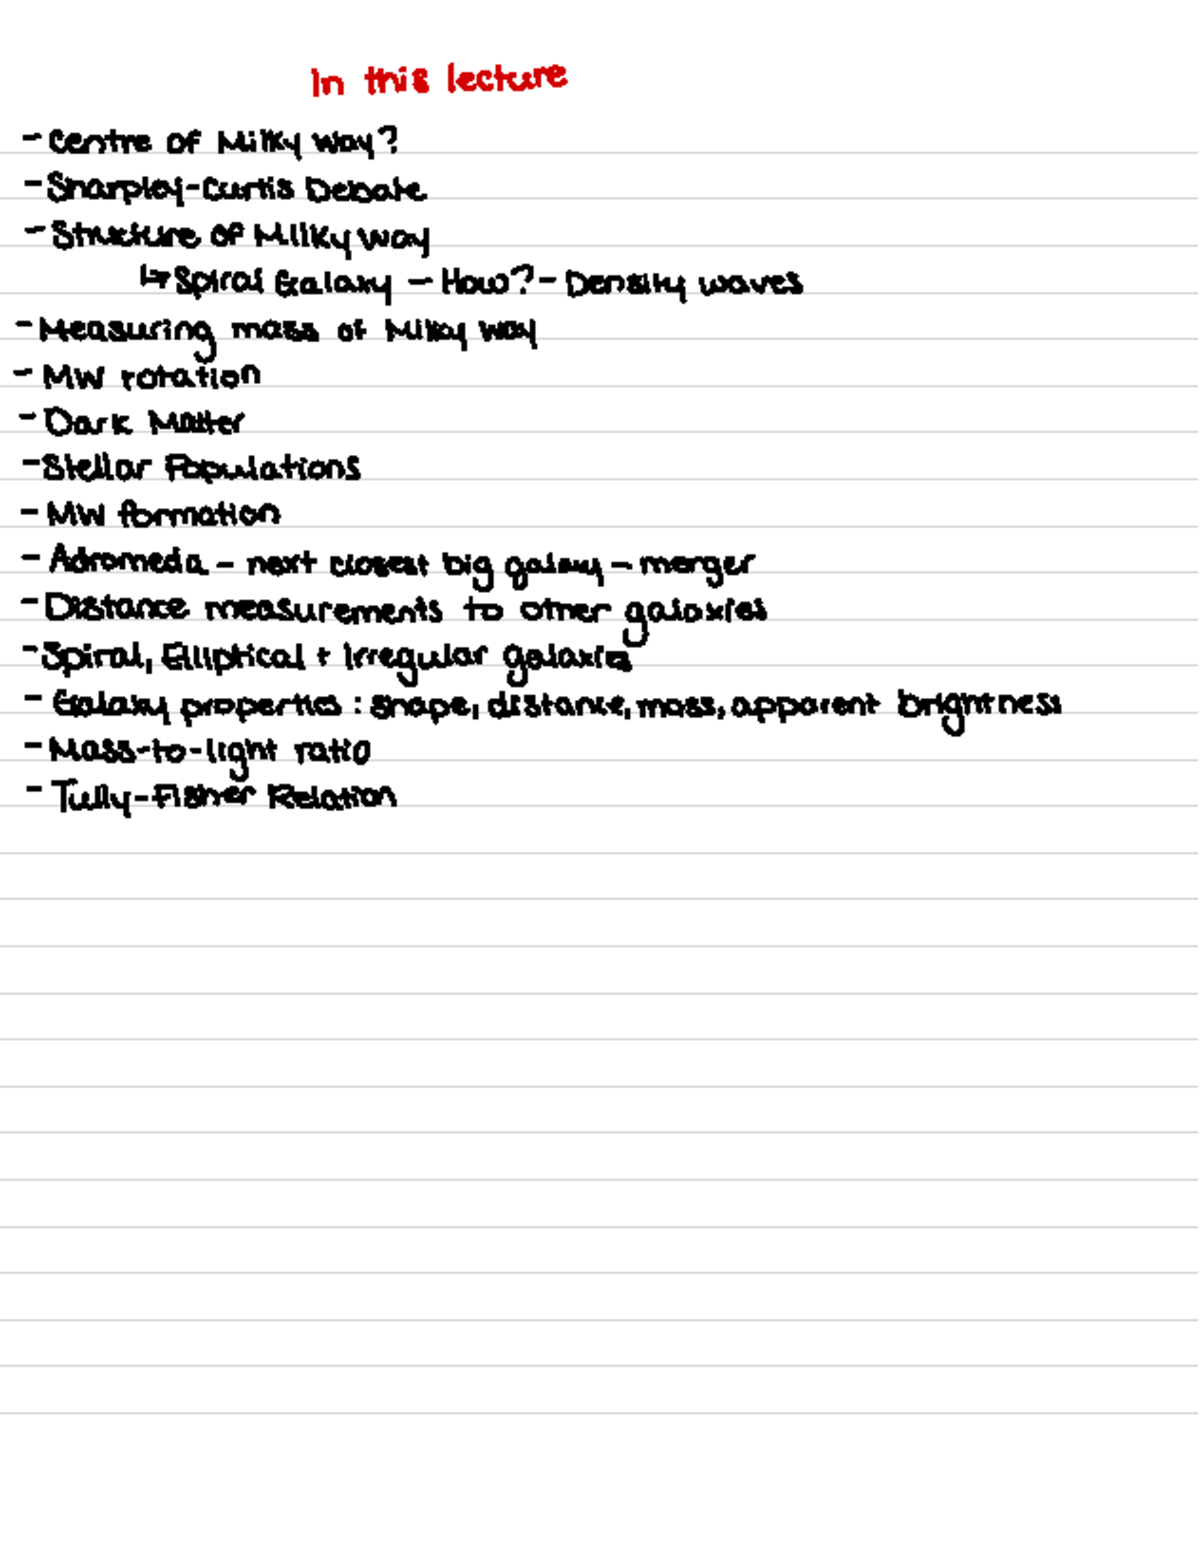 In this lecture
- Centre of Milky Way?
- Sharpley-Curtis Debate
- Structure of Milky Way
↳ Spiral Galaxy - How? - Density waves
- Measuring mass of Milky Way
- MW rotation
- Dark Matter
- Stellar Populations
- MW formation
- Adromeda - next closest big galaxy - merger
- Distance measurements to other galaxies
- Spiral, Elliptical + Irregular galaxies
- Galaxy properties : shape, distance, mass, apparent brightness
- Mass-to-light ratio
- Tully-Fisher Relation